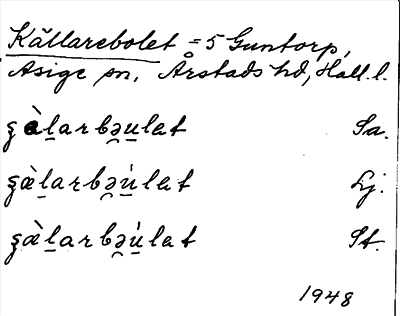 Källarebolet = 5 Guntorp,
Asige sn, Årstads hd, Hall. l.
ʂæ̀l̠arbə̯u̠lat Sa.
ʂæl̠arbə̯ú̠lat Lj.
ʂæ̀l̠arbə̯ú̠lat St.
1948